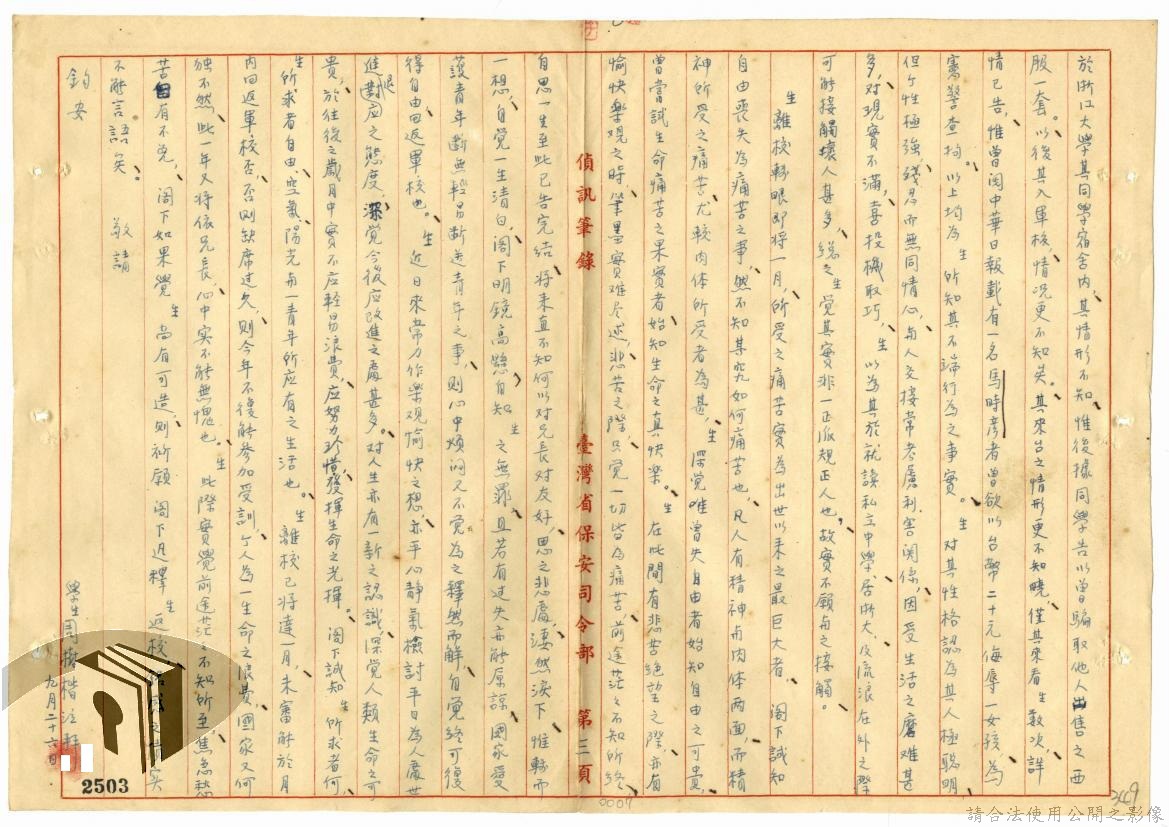 於浙江大學其同學宿舍內，其情形不知，惟後據同學告以曾騙取他人出售之西
服一套。以後其入軍校，情況更不知矣。其來台之情形更不知曉，僅其來看生數次，詳
情已告，惟曾閱中華日報載有一名馬時彥者曾欲以台幣二十元侮辱一女孩，為
憲警查拘。以上均為生所知其不端行為之事實。生對其性格認為其人極聰明
但个性極強，殘忍而無同情心，与人交接常考慮利害関係，因受生活之磨难甚
多，对現實不滿，喜投機取巧，生以為其於就讀私立中學，居浙大，及流浪在外之際
可能接觸壞人甚多，總之生覚其實非一正派規正人也，故實不願与之接觸。
生離校轉眼即將一月，所受之痛苦實為出世以來之最巨大者，閣下誠知
自由喪失為痛苦之事，然不知其究如何痛苦也，凡人有精神与肉体两面，而精
神所受之痛苦尤較肉体所受者為甚，生深覚唯曾失自由者始知自由之可貴，
曾嘗試生命痛苦之果實者始知生命之真快樂。生在此間有悲苦絕望之際，亦有
愉快樂观之時，筆墨實难尽述，悲苦之際只覚一切皆為痛苦，前途茫茫不知所終，
偵訊筆錄 臺灣省保安司令部 第三頁
自思一生至此已告完結，將來真不知何以对兄長对友好，思之悲處凄然淚下，惟轉而
一想，自覚一生清白，阁下明鏡高懸自知生之無罪，且若有过失亦能原諒，國家愛
護青年断無輕易断送青年之事，則心中煩悶又不覚為之釋然而解，自覚終可復
得自由回返軍校也。生近日來常力作樂观愉快之想，亦平心靜氣檢討平日為人處世
進退對应之態度，深覚今後应改進之處甚多。对人生亦有一新之認識，深覚人類生命之可
貴，於往後之歲月中實不应輕易浪費，应努力珍惜，發揮生命之光揮。阁下誠知生所求者何
生所求者自由、空氣、陽光与一青年所应有之生活也。生離校已將達一月，未審能於月
內回返軍校否，否則缺席过久，則今年不復能參加受訓，个人為一生命之浪費，國家又何
独不然，此一年又將依兄長，心中实不能無愧也。生此際實覚前途茫茫不知所至，焦急愁
苦自有不免，阁下如果覚生尚有可造，則祈願阁下迅釋生返校，
不能言語矣。敬請
鈞安
學生周
九月二十六日
2503
0007
349
請合法使用公開之影像